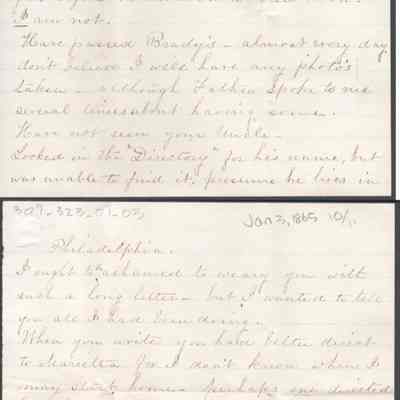 I am not.
Have passed Brady's - almost every day
don't believe I will have any photo's
taken - although Father spoke to me
several times about having some.
Have not seen your Uncle -
Looked in the "Directory" for his name, but
was unable to find it, presume he lives in
307-323-01-03
Jan 3, 1865 10/11
Philadelphia.
I ought to be ashamed to weary you with
such a long letter - but I wanted to tell
you all I had been doing.
When you write you had better direct
to for I don't know when I
may start home - Perhaps one directed